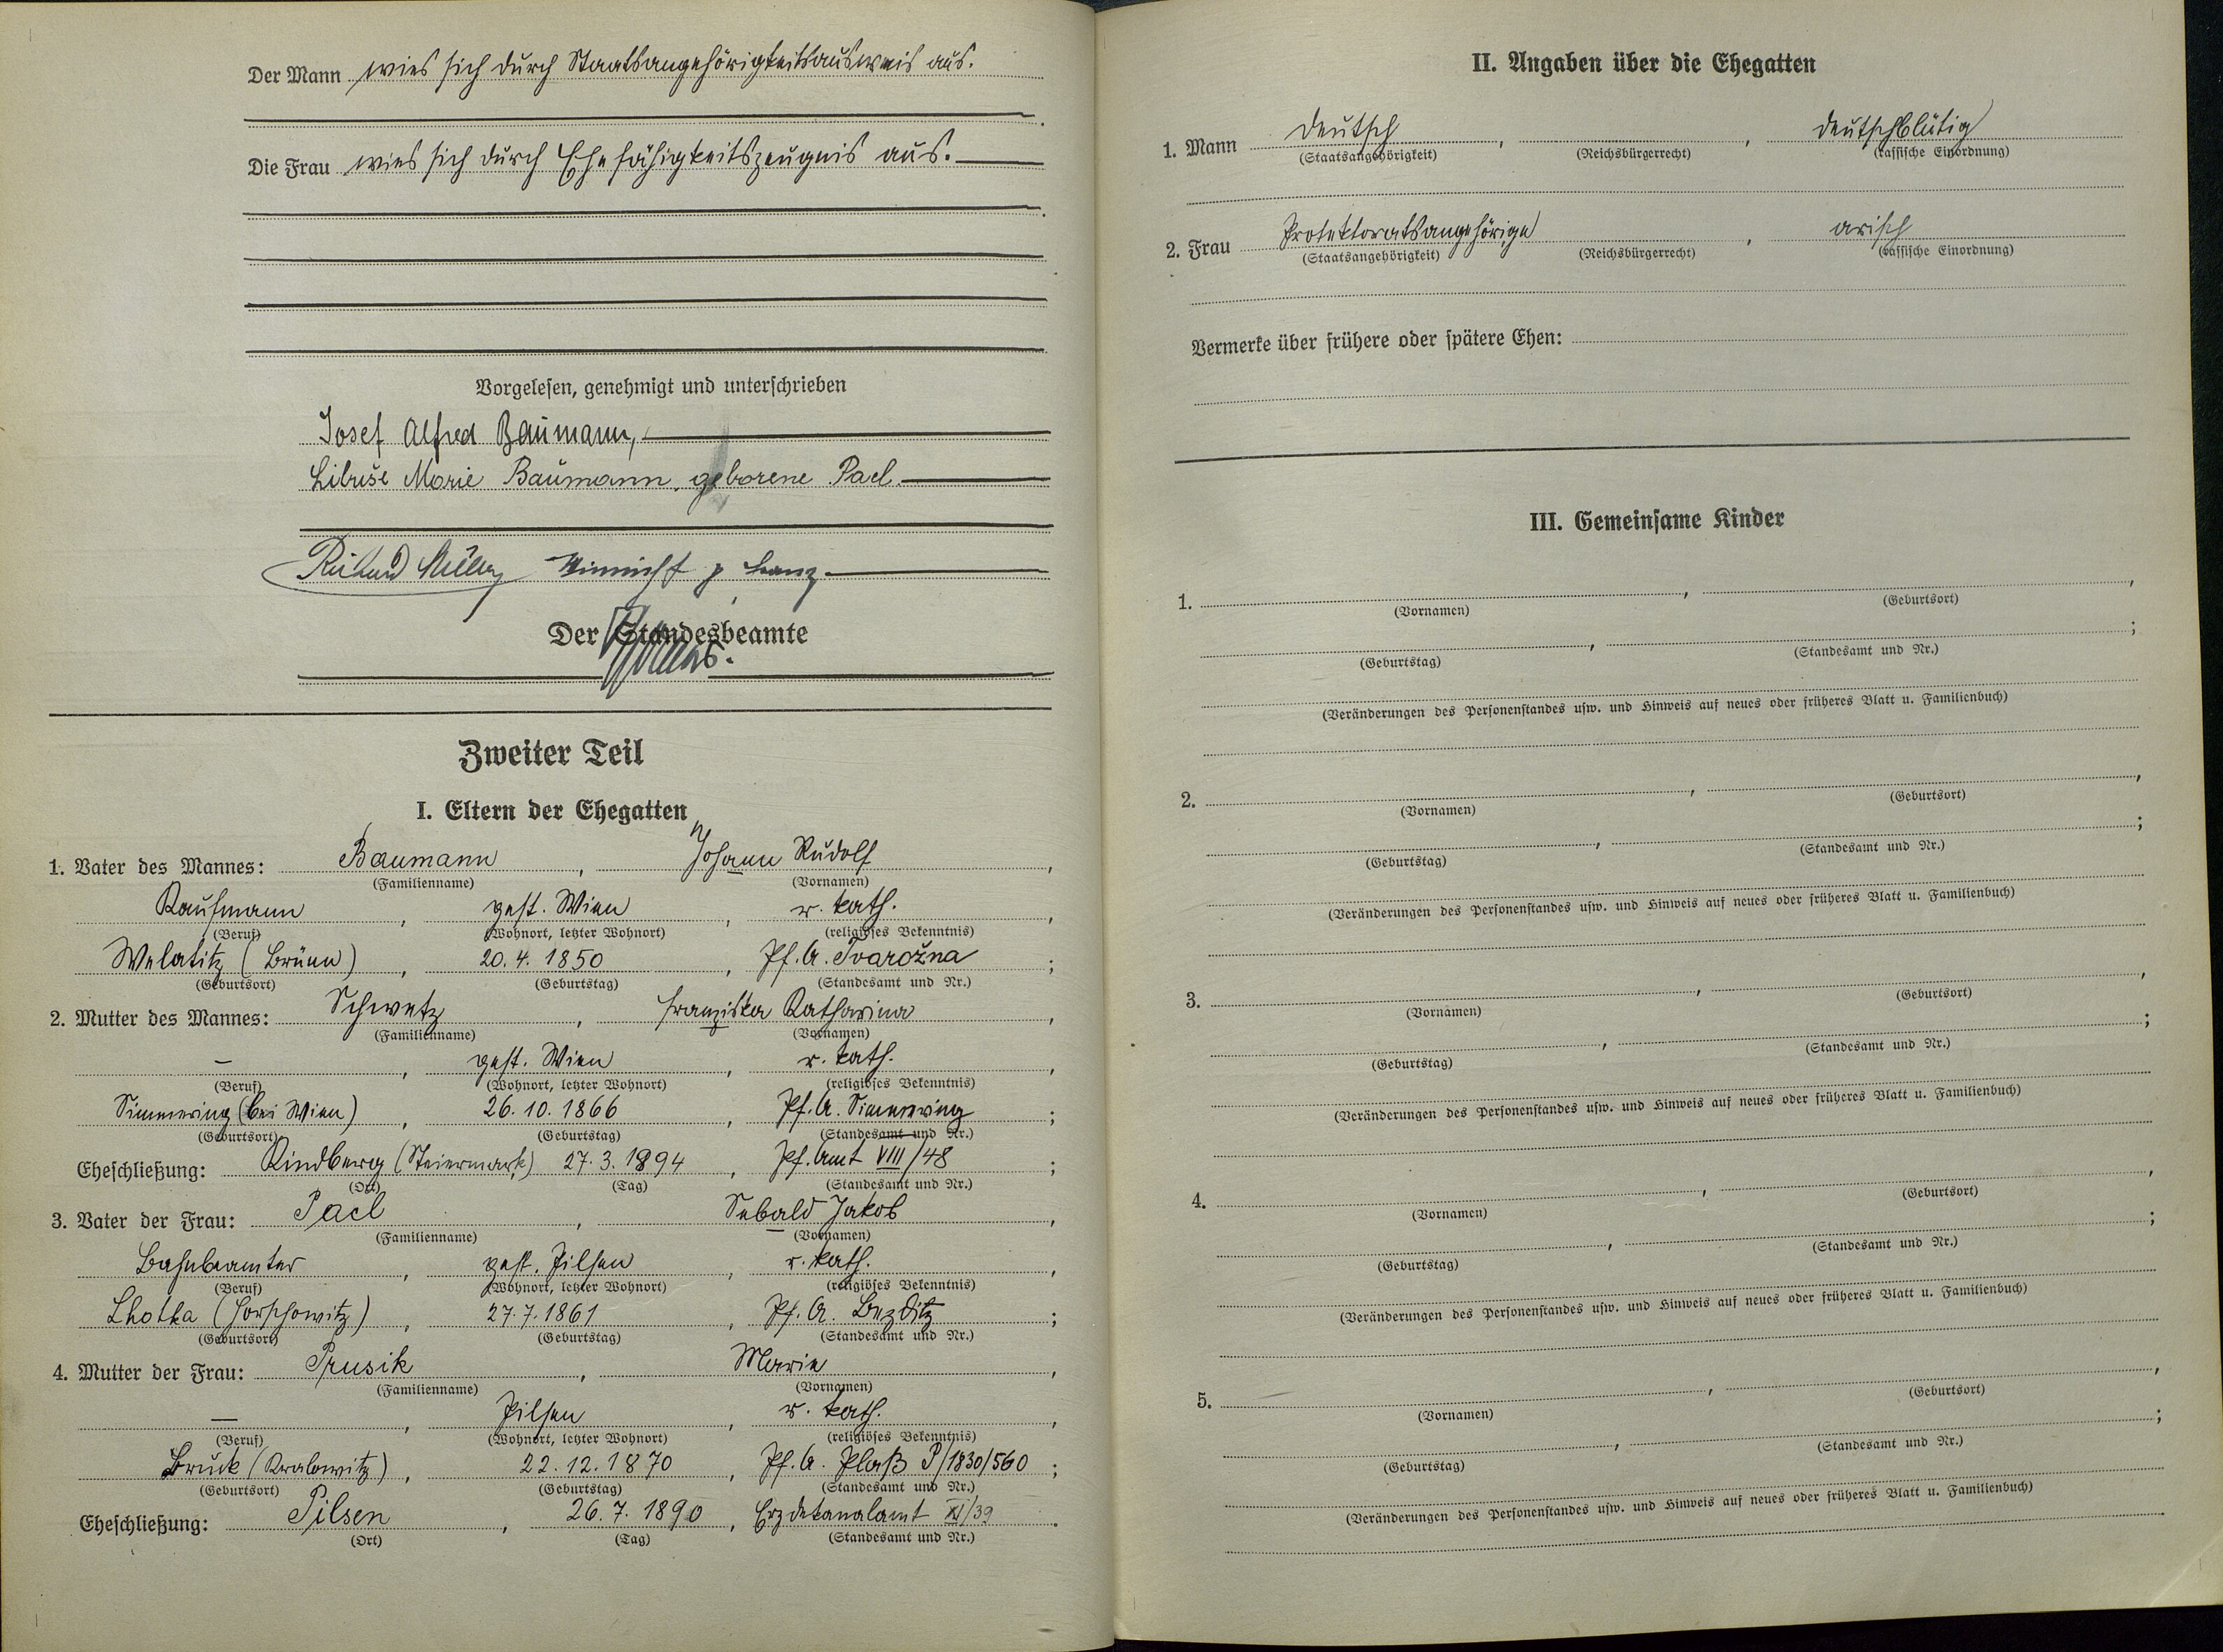 Der Mann wies sich durch Staatsangehörigkeitsausweis aus.
Die Frau wies sich durch Ehefähigkeitszeugnis aus.
Vorgelesen, genehmigt und unterschrieben
Josef Alfred Baumann,
Libuše Marie Baumann, geborene Pacl.
Richard
Der Standesbeamte
Zweiter Teil
I. Eltern der Ehegatten
1. Vater des Mannes: Baumann, Johann Rudolf,
(Familienname) (Vornamen)
Kaufmann, gest. Wien, r. kath.,
(Beruf) (Wohnort, letzter Wohnort) (religiöses Bekenntnis)
Welatitz (Brünn), 20. 4. 1850, Pf. A. Tvarožna;
(Geburtsort) (Geburtstag) (Standesamt und Nr.)
2. Mutter des Mannes: Schwetz, Franziska Katharina,
(Familienname) (Vornamen)
—, gest. Wien, r. kath.,
(Beruf) (Wohnort, letzter Wohnort) (religiöses Bekenntnis)
Simmering (bei Wien), 26. 10. 1866, Pf. A. Simmering;
(Geburtsort) (Geburtstag) (Standesamt und Nr.)
Eheschließung: Kindberg (Steiermark) 27. 3. 1894, Pf. Amt VIII/48;
(Ort) (Tag) (Standesamt und Nr.)
3. Vater der Frau: Pacl, Sebald Jakob,
(Familienname) (Vornamen)
Bahnbeamter, gest. Pilsen, r. kath.,
(Beruf) (Wohnort, letzter Wohnort) (religiöses Bekenntnis)
Lhotka (Horschowitz), 27. 7. 1861, Pf. A. Bezditz;
(Geburtsort) (Geburtstag) (Standesamt und Nr.)
4. Mutter der Frau: Prusik, Marie,
(Familienname) (Vornamen)
—, Pilsen, r. kath.,
(Beruf) (Wohnort, letzter Wohnort) (religiöses Bekenntnis)
Bruck (Kralowitz), 22. 12. 1870, Pf. A. Plaß P/1830/560;
(Geburtsort) (Geburtstag) (Standesamt und Nr.)
Eheschließung: Pilsen, 26. 7. 1890, Erzdekanalamt XI/39.
(Ort) (Tag) (Standesamt und Nr.)
II. Angaben über die Ehegatten
1. Mann deutsch, , deutschblütig
(Staatsangehörigkeit) (Reichsbürgerrecht) (rassische Einordnung)
2. Frau Protektoratsangehörige, arisch
(Staatsangehörigkeit) (Reichsbürgerrecht) (rassische Einordnung)
Vermerke über frühere oder spätere Ehen:
III. Gemeinsame Kinder
1. , ,
(Vornamen) (Geburtsort)
, ;
(Geburtstag) (Standesamt und Nr.)
(Veränderungen des Personenstandes usw. und Hinweis auf neues oder früheres Blatt u. Familienbuch)
2. , ,
(Vornamen) (Geburtsort)
, ;
(Geburtstag) (Standesamt und Nr.)
(Veränderungen des Personenstandes usw. und Hinweis auf neues oder früheres Blatt u. Familienbuch)
3. , ,
(Vornamen) (Geburtsort)
, ;
(Geburtstag) (Standesamt und Nr.)
(Veränderungen des Personenstandes usw. und Hinweis auf neues oder früheres Blatt u. Familienbuch)
4. , ,
(Vornamen) (Geburtsort)
, ;
(Geburtstag) (Standesamt und Nr.)
(Veränderungen des Personenstandes usw. und Hinweis auf neues oder früheres Blatt u. Familienbuch)
5. , ,
(Vornamen) (Geburtsort)
, ;
(Geburtstag) (Standesamt und Nr.)
(Veränderungen des Personenstandes usw. und Hinweis auf neues oder früheres Blatt u. Familienbuch)